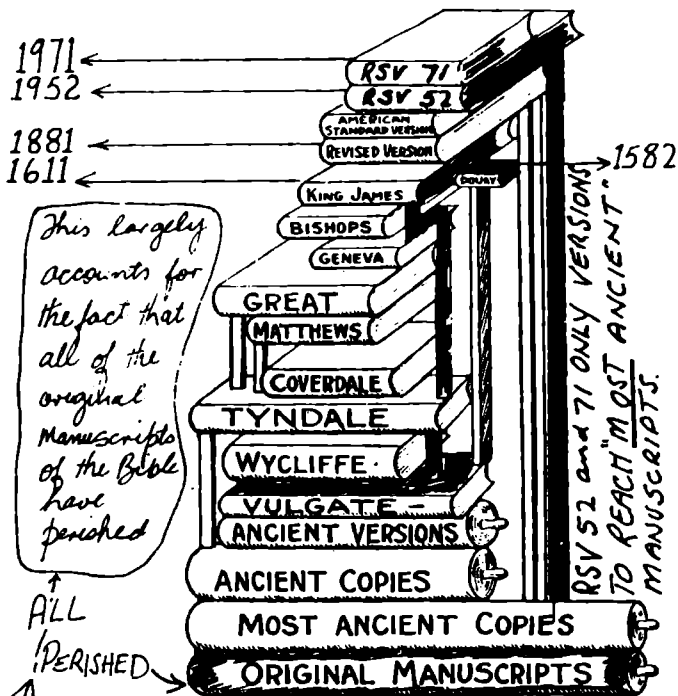 1971
1952
1881
1611
1582
RSV 71
RSV 52
AMERICAN
STANDARD VERSION
REVISED VERSION
KING JAMES
DOUAY
BISHOPS
GENEVA
GREAT
MATTHEWS
COVERDALE
TYNDALE
WYCLIFFE.
VULGATE -
ANCIENT VERSIONS
ANCIENT COPIES
MOST ANCIENT COPIES
ORIGINAL MANUSCRIPTS
This largely
accounts for
the fact that
all of the
original
Manuscripts
of the Bible
have
perished
ALL
PERISHED
RSV 52 and 71 ONLY VERSIONS
TO REACH "MOST ANCIENT"
MANUSCRIPTS.